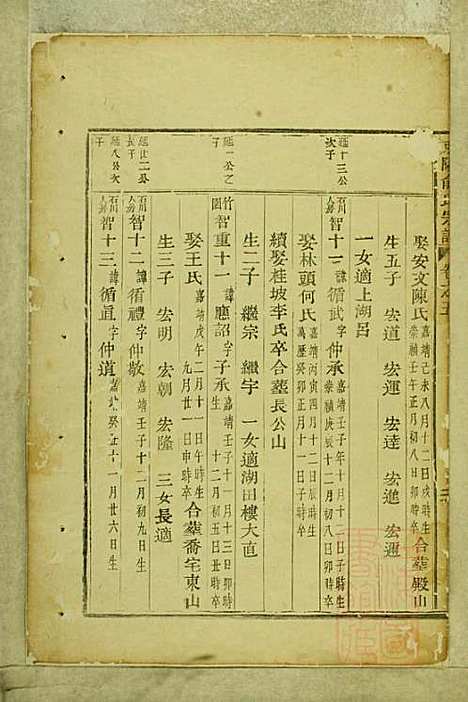 娶安文陳氏嘉靖己未八月十二日戌時生崇禎壬午正月初八日卯時卒合葬殿山
生五子 宏道 宏運 宏達 宏進 宏還
一女適上湖呂
延十三公次子
石川人房智十一諱循武字仲承嘉靖壬子年十月十二日辰時生崇禎庚辰十二月初八日卯時卒
娶林頭何氏嘉靖丙寅四月十二日辰時生萬歷癸卯正月十一日子時卒
續娶桂坡李氏卒合葬長公山
生二子 繼宗 繼宇 一女適湖田樓大直
延一公之子
竹園智重十一諱應詔字子承嘉靖壬子十一月十三日卯時生十二月初五日丑時卒
娶王氏嘉靖戊午二月十一日午時生九月廿一日申時卒合葬喬宅東山
生三子 宏明 宏朝 宏隆 三女長適
延廿二公長子
石川人房智十二諱循禮字仲敬嘉靖壬子十二月初九日生
延八公次子
石川人房智十三諱循直字仲道嘉靖癸丑十一月廿六日生